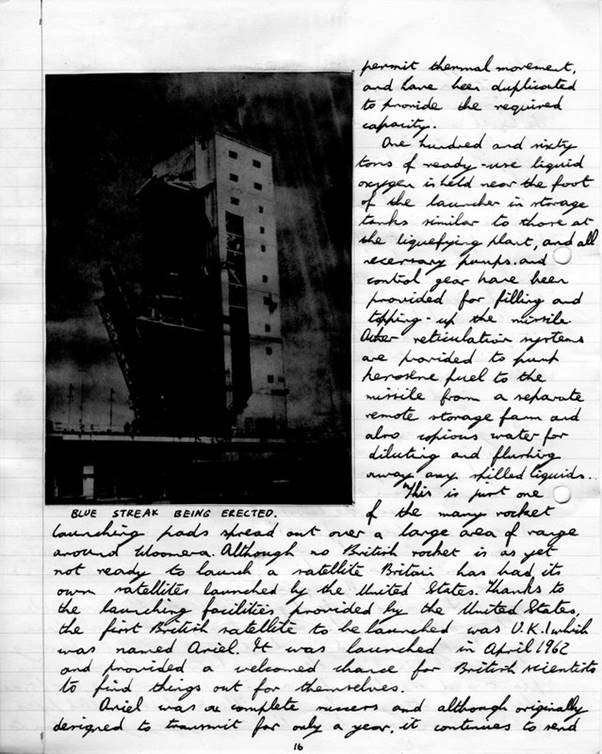 permit thermal movement,
and have been duplicated
to provide the required
capacity.
One hundred and sixty
tons of ready-use liquid
oxygen is held near the foot
of the launcher in storage
tanks similar to those at
the liquefying plant, and all
necersary pumps and
control gear have been
provided for filling and
topping-up the missile
Other reticulation systems
are provided to pump
kerosene fuel to the
missile from a separate
remote storage farm and
also copious water for
diluting and flushing
away any spilled liquids.
This is just one
BLUE STREAK BEING ERECTED.
of the many rocket
launching pads spread out over a large area of range
around Woomera. Although no British rocket is as yet
not ready to launch a satellite Britain has had its
own satellites launched by the United States. Thanks to
the launching facilities provided by the United States,
the first British satellite to be launched was U.K.1 which
was named Ariel. It was launched in April 1962
and provided a welcomed chance for British scientists
to find things out for themselves.
Ariel was a complete success and although originally
designed to transmit for only a year, it continues to send
16